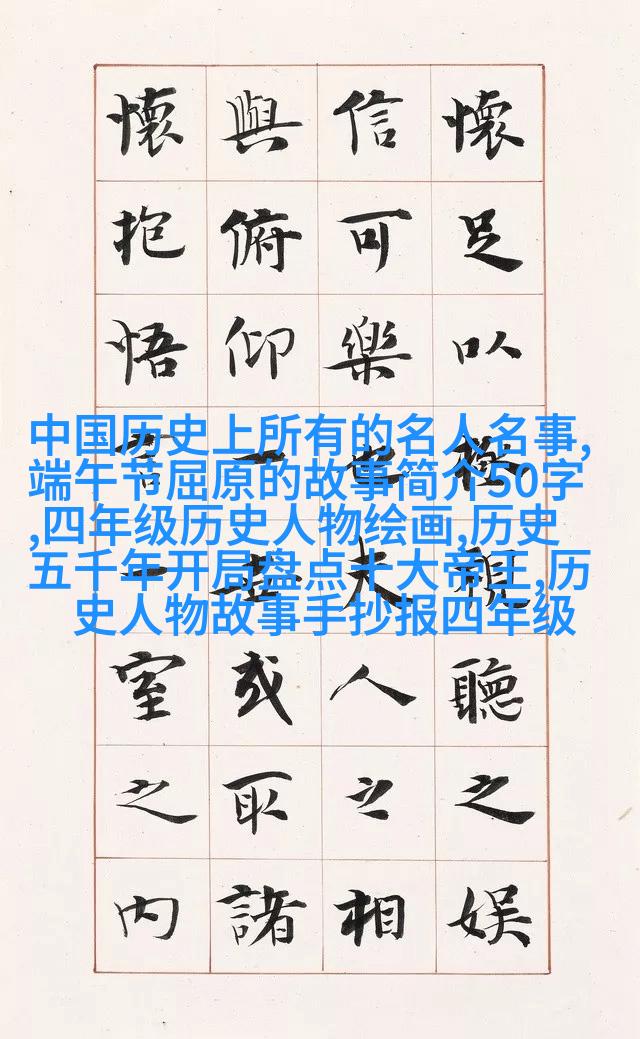 懷足以極視聽之娛
信可樂也夫人之相
與俯仰一世或取諸
懷抱悟言一室之內
中国历史上所有的名人名事,
端午节屈原的故事简介50字
,四年级历史人物绘画,历史
五千年开局盘点十大帝王,历
史人物故事手抄报四年级